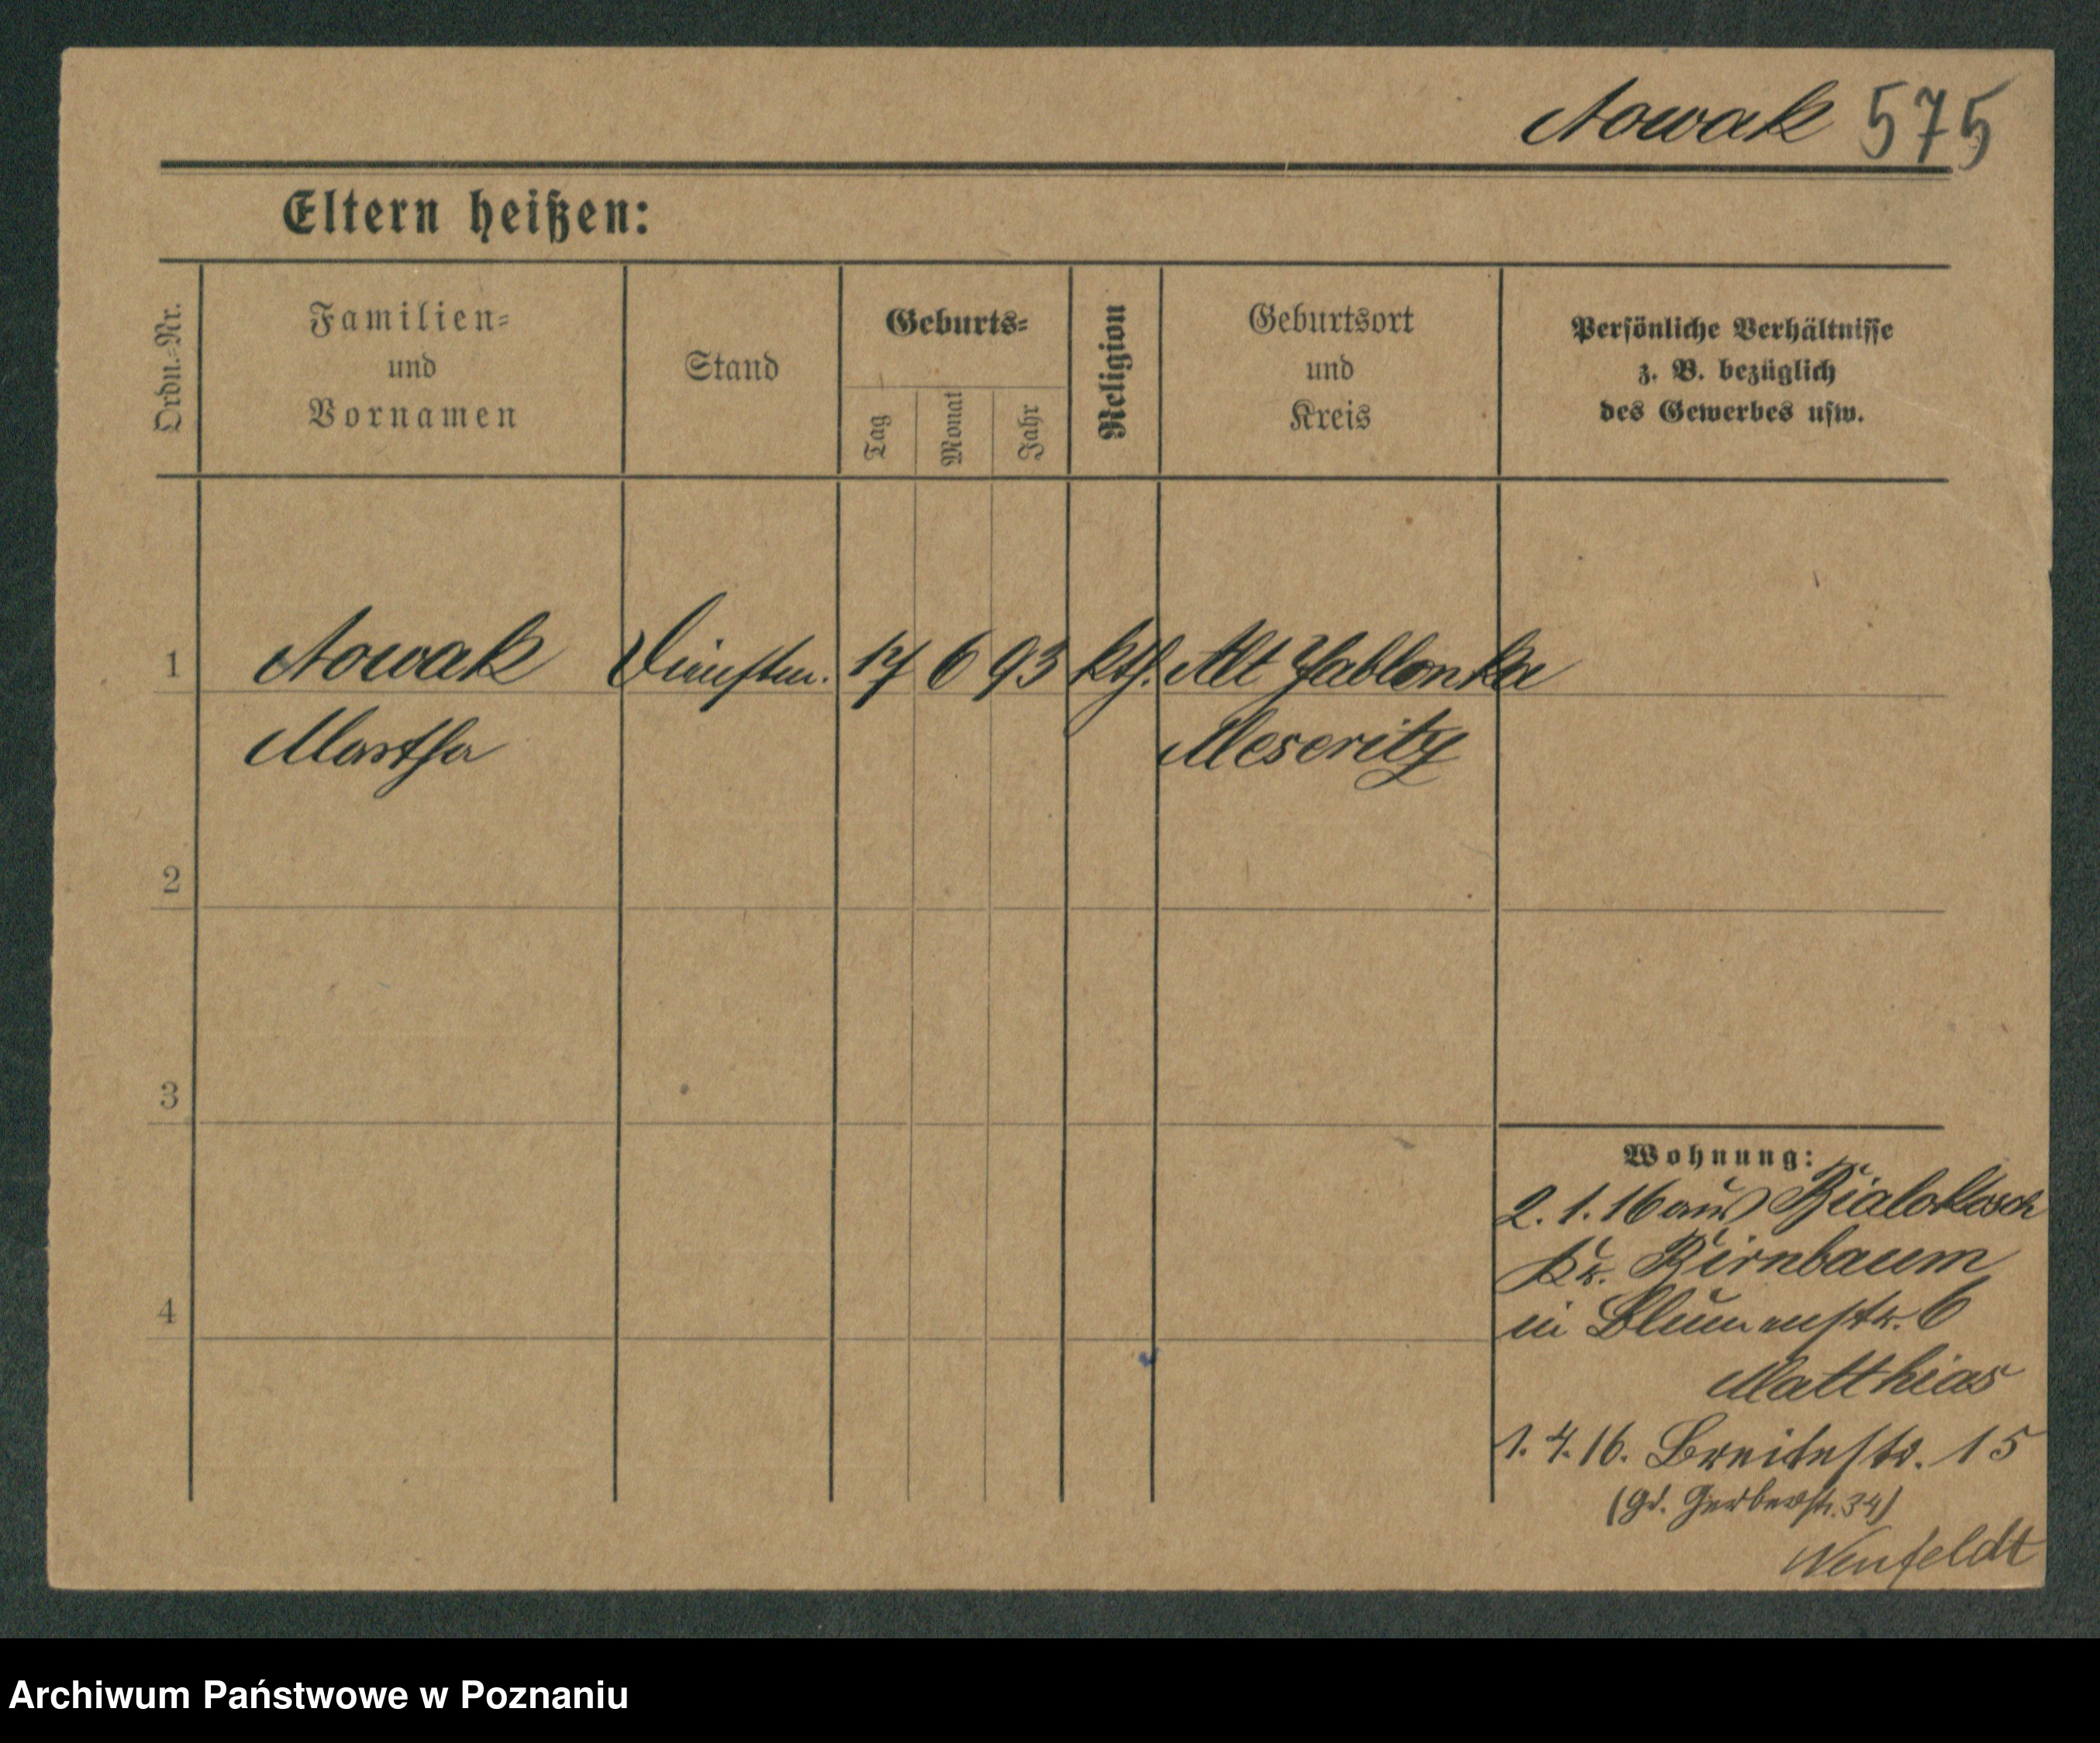 Nowak 575
Eltern heißen:
Ordn.=Nr.
Familien=
und
Vornamen
Stand
Geburts=
Tag
Monat
Jahr
Religion
Geburtsort
und
Kreis
Persönliche Verhältnisse
z. B. bezüglich
des Gewerbes usw.
1 Nowak Dienstm. 17 6 93 kth. Alt Jablonka
Martha Meseritz
2
3
Wohnung:
2. 1. 16 aus Bialokosch
Kr. Birnbaum
4
in Blumenstr. 6
Matthias
1. 4. 16. Breitestr. 15
(Gr. Gerberstr. 34)
Neufeldt
Archiwum Państwowe w Poznaniu